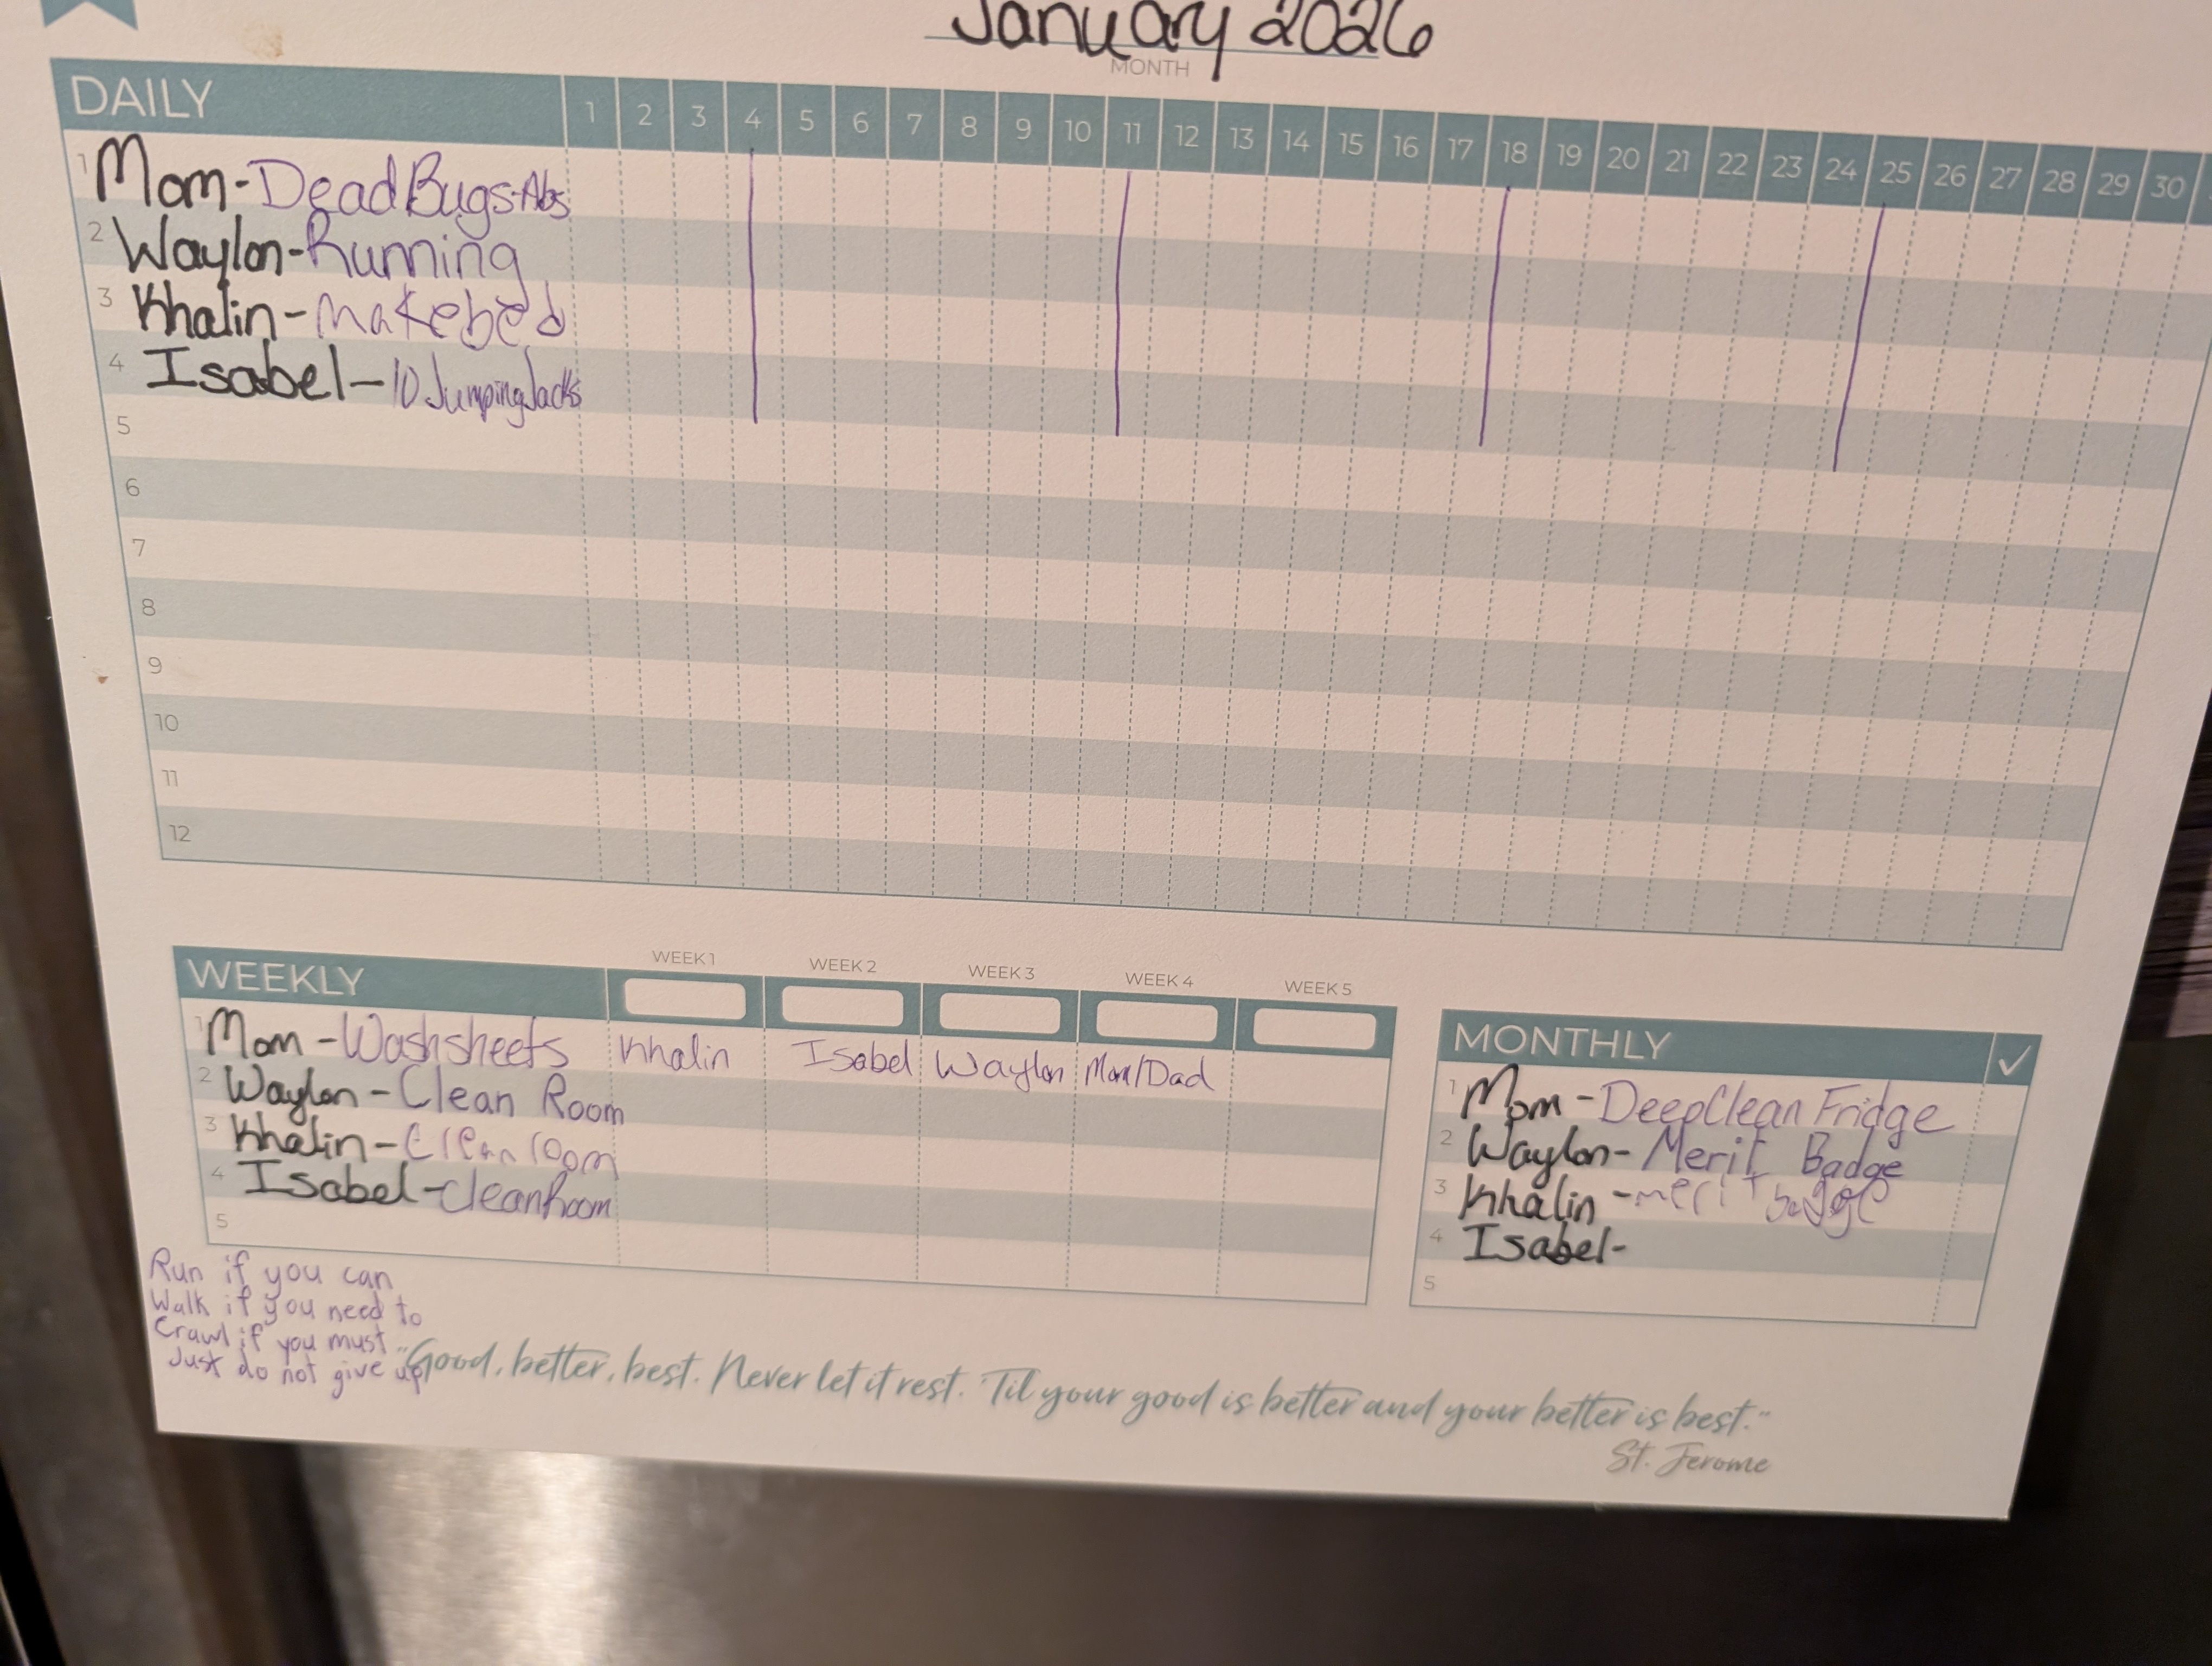 January 2026
MONTH
DAILY 1 2 3 4 5 6 7 8 9 10 11 12 13 14 15 16 17 18 19 20 21 22 23 24 25 26 27 28 29 30
1 Mom-Dead Bugs-Abs
2 Waylon-Running
3 Khalin-makebed
4 Isabel-10 Jumping Jacks
5
6
7
8
9
10
11
12
WEEK 1 WEEK 2 WEEK 3 WEEK 4 WEEK 5
WEEKLY
1 Mom-Wash sheets Khalin Isabel Waylon Mom/Dad
2 Waylon-Clean Room
3 Khalin-Clean room
4 Isabel-Clean Room
5
MONTHLY ✓
1 Mom-Deep Clean Fridge
2 Waylon-Merit Badge
3 Khalin-merit badge
4 Isabel-
5
Run if you can
Walk if you need to
Crawl if you must
Just do not give up
"Good, better, best. Never let it rest. 'Til your good is better and your better is best."
St. Jerome